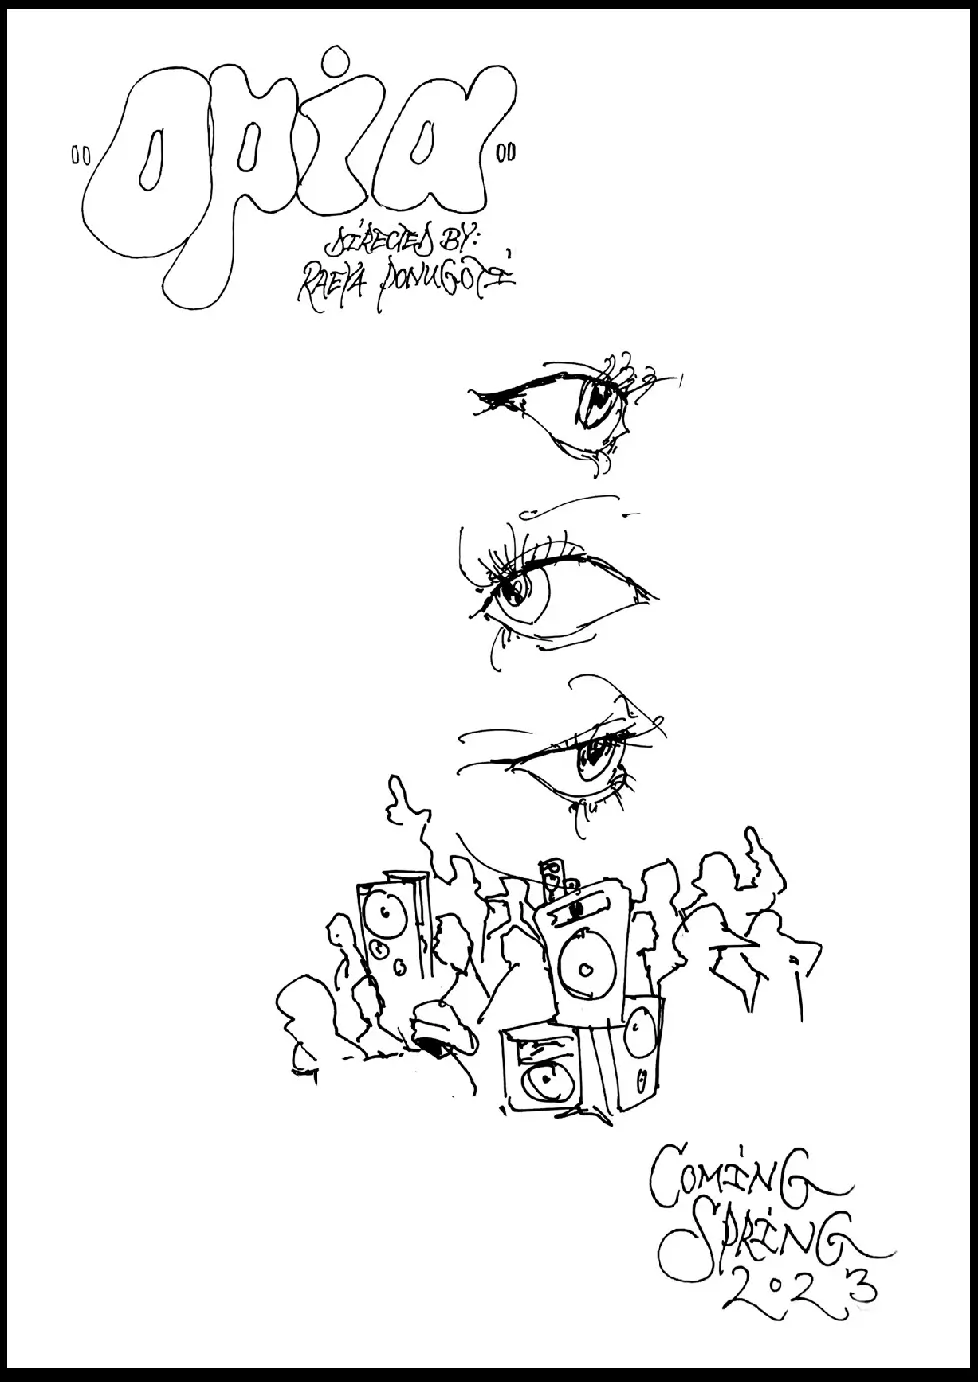 "opia"
DIRECTED BY:
RAEYA PONUGOTI
COMING
SPRING
2023